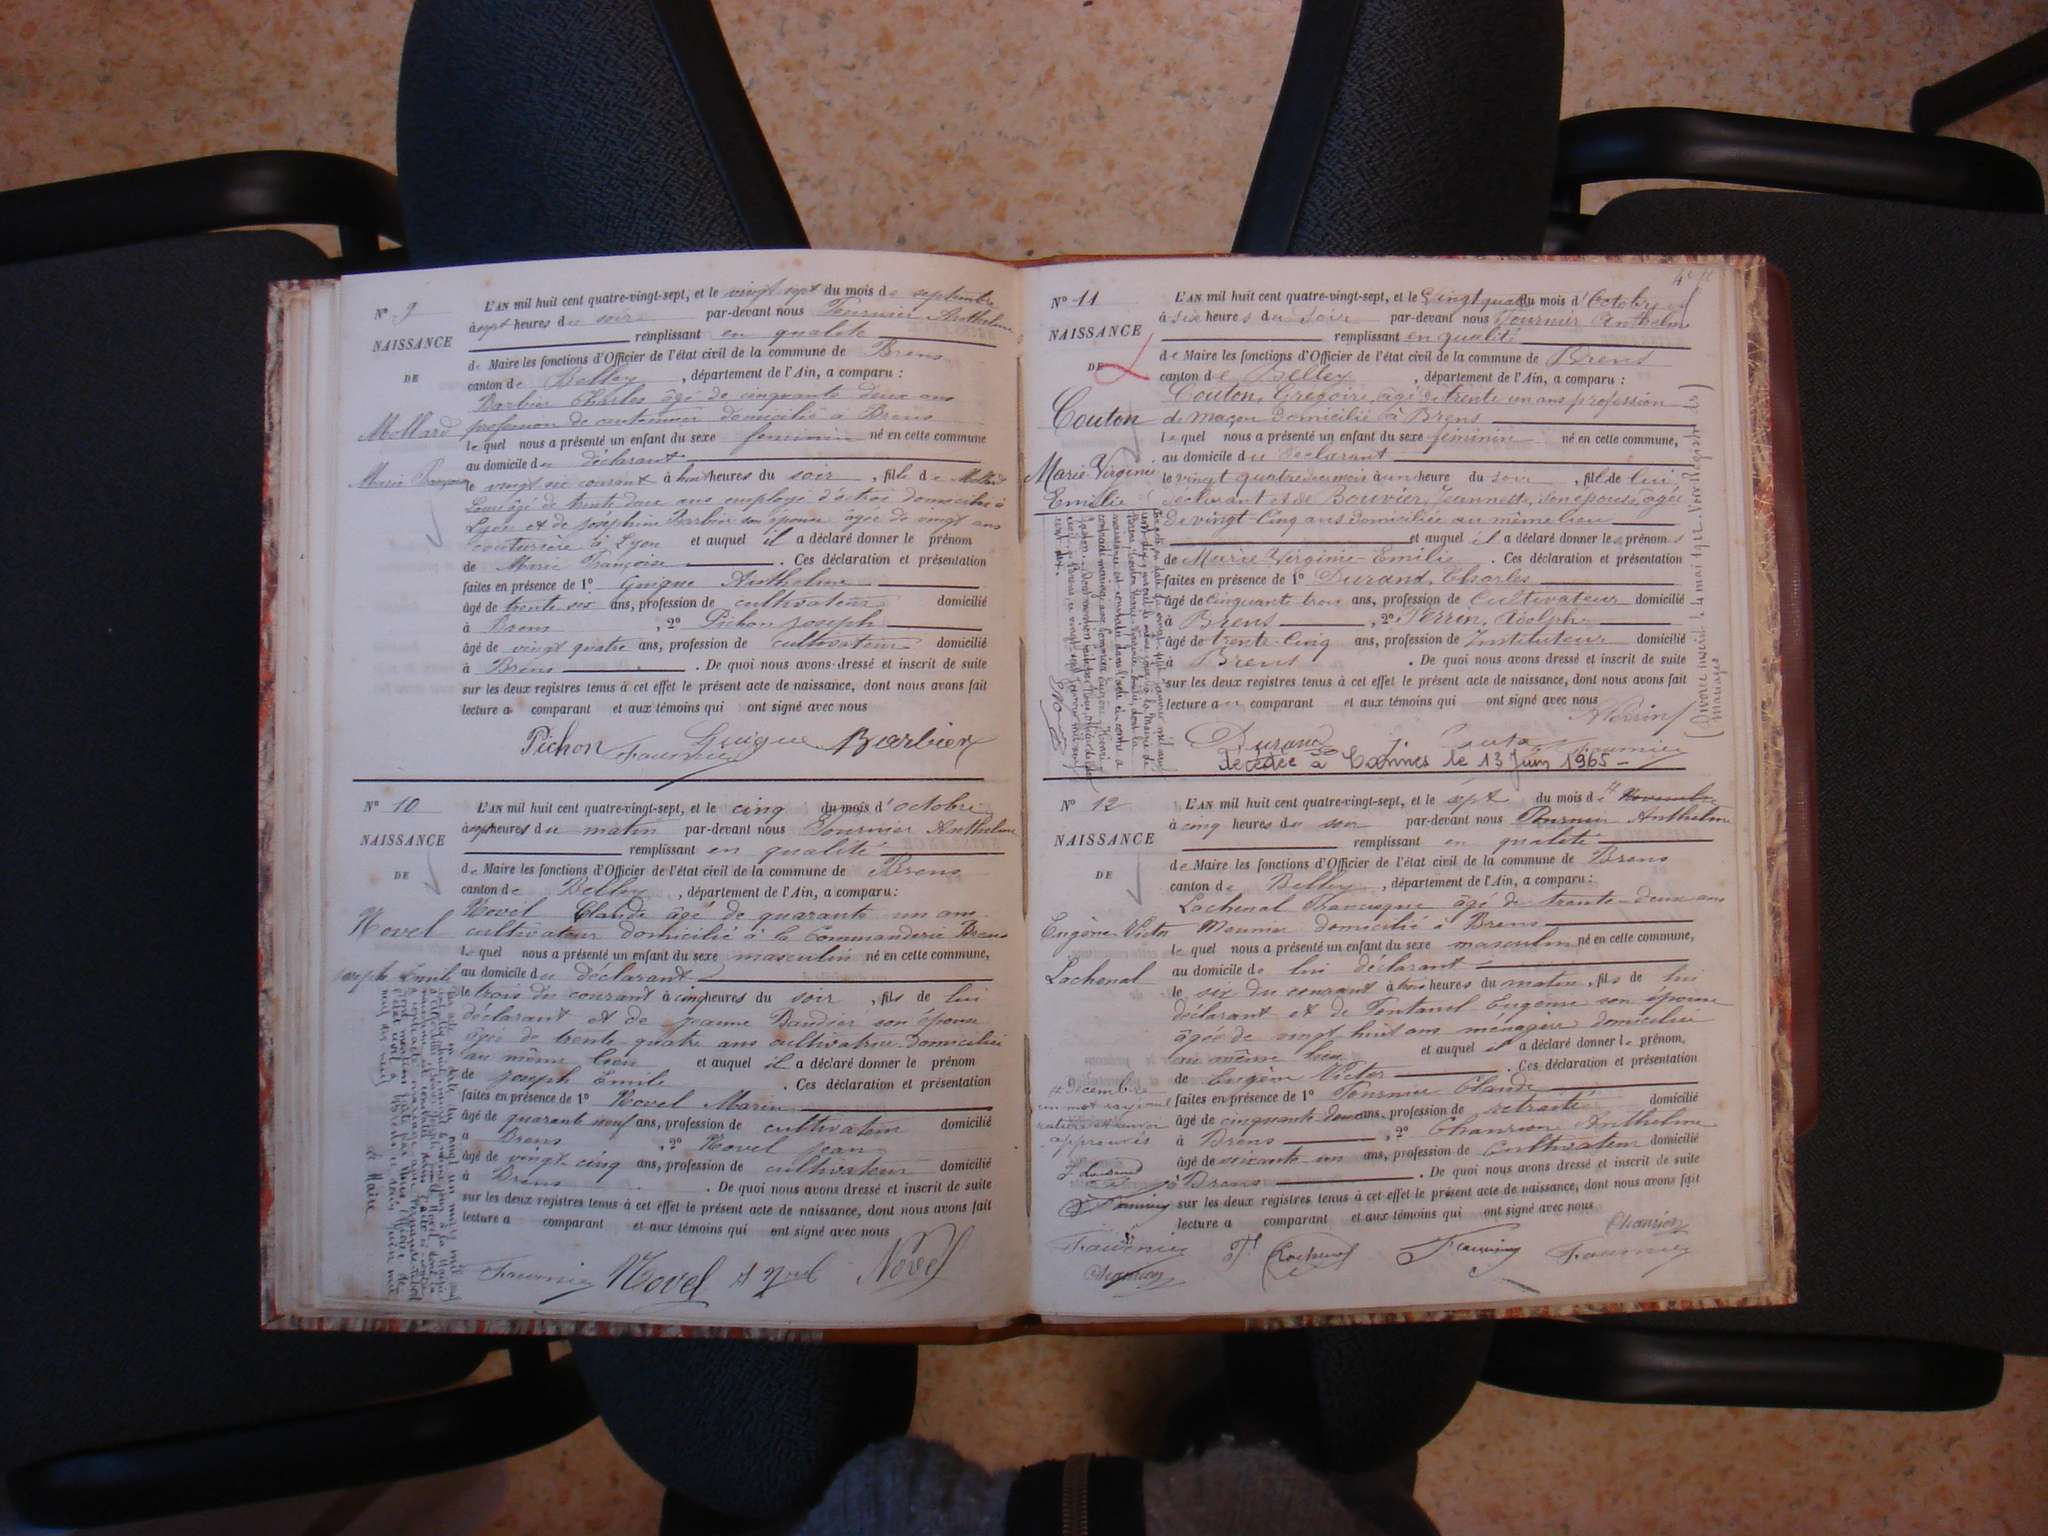 N° 9
NAISSANCE
DE
Mollard
Marie Françoise
L'AN mil huit cent quatre-vingt-sept, et le vingt sept du mois de septembre
à sept heures du soir par-devant nous Fournier Anthelme
remplissant en qualité
de Maire les fonctions d'Officier de l'état civil de la commune de Brens
canton de Belley, département de l'Ain, a comparu :
Barbier Charles âgé de cinquante deux ans
profession de cultivateur domicilié à Brens
lequel nous a présenté un enfant du sexe féminin né en cette commune
au domicile du déclarant
le vingt six courant à huit heures du soir, fille de Mollard
Louis âgé de trente deux ans employé d'octroi domicilié à
Lyon et de Joséphine Barbier son épouse âgée de vingt ans
couturière à Lyon et auquel il a déclaré donner le prénom
de Marie Françoise. Ces déclaration et présentation
faites en présence de 1° Guigue Anthelme
âgé de trente six ans, profession de cultivateur domicilié
à Brens, 2° Pichon Joseph
âgé de vingt quatre ans, profession de cultivateur domicilié
à Brens. De quoi nous avons dressé et inscrit de suite
sur les deux registres tenus à cet effet le présent acte de naissance, dont nous avons fait
lecture a comparant et aux témoins qui ont signé avec nous
Pichon Guigue Barbier
Fournier
N° 10
NAISSANCE
DE
Novel
Joseph Emile
L'AN mil huit cent quatre-vingt-sept, et le cinq du mois d'octobre
à sept heures du matin par-devant nous Fournier Anthelme
remplissant en qualité
de Maire les fonctions d'Officier de l'état civil de la commune de Brens
canton de Belley, département de l'Ain, a comparu :
Novel Claude âgé de quarante un ans
cultivateur domicilié à la Commanderie Brens
lequel nous a présenté un enfant du sexe masculin né en cette commune,
au domicile du déclarant
le trois du courant à cinq heures du soir, fils de lui
déclarant et de Jeanne Baudier son épouse
âgée de trente-quatre ans cultivatrice domiciliée
au même lieu et auquel il a déclaré donner le prénom
de Joseph Emile. Ces déclaration et présentation
faites en présence de 1° Novel Marin
âgé de quarante neuf ans, profession de cultivateur domicilié
à Brens, 2° Novel Jean
âgé de vingt-cinq ans, profession de cultivateur domicilié
à Brens. De quoi nous avons dressé et inscrit de suite
sur les deux registres tenus à cet effet le présent acte de naissance, dont nous avons fait
lecture a comparant et aux témoins qui ont signé avec nous
Le Maire
Fournier Novel Novel Novel
N° 11
NAISSANCE
DE
Couton
Marie Virginie
Emilie
L'AN mil huit cent quatre-vingt-sept, et le vingt quatre du mois d'Octobre
à six heures du soir par-devant nous Fournier Anthelm
remplissant en qualité
de Maire les fonctions d'Officier de l'état civil de la commune de Brens
canton de Belley, département de l'Ain, a comparu :
Couton, Grégoire, âgé de trente un ans profession
de maçon domicilié à Brens
lequel nous a présenté un enfant du sexe féminin né en cette commune,
au domicile du déclarant
le vingt quatre du mois à un heure du soir, fille de lui
déclarant et de Bouvier, Jeannette, son épouse âgée
de vingt-cinq ans domiciliée au même lieu
et auquel il a déclaré donner les prénoms
de Marie Virginie-Emilie. Ces déclaration et présentation
faites en présence de 1° Durand, Charles
âgé de cinquante trois ans, profession de Cultivateur domicilié
à Brens, 2° Perrin, Adolphe
âgé de trente-cinq ans, profession de Instituteur domicilié
à Brens. De quoi nous avons dressé et inscrit de suite
sur les deux registres tenus à cet effet le présent acte de naissance, dont nous avons fait
lecture au comparant et aux témoins qui ont signé avec nous
A Perrin
Durand Fournier
décédée à Cannes le 13 Juin 1965
(Divorce inscrit 14 mai 1922. Voir Registre des
Mariages)
N° 12
NAISSANCE
DE
Eugène-Victor
Lachenal
L'AN mil huit cent quatre-vingt-sept, et le sept du mois de Novembre
à cinq heures du soir par-devant nous Fournier Anthelme
remplissant en qualité
de Maire les fonctions d'Officier de l'état civil de la commune de Brens
canton de Belley, département de l'Ain, a comparu :
Lachenal Francisque âgé de trente-deux ans
Meunier domicilié à Brens
lequel nous a présenté un enfant du sexe masculin né en cette commune,
au domicile de lui déclarant
le six du courant à trois heures du matin, fils de lui
déclarant et de Fontanel Eugénie son épouse
âgée de vingt huit ans ménagère domiciliée
au même lieu et auquel il a déclaré donner le prénom,
de Eugène Victor. Ces déclaration et présentation
faites en présence de 1° Fournier Claude
âgé de cinquante deux ans, profession de retraité domicilié
à Brens, 2° Chanrion Anthelme
âgé de soixante-un ans, profession de Cultivateur domicilié
à Brens. De quoi nous avons dressé et inscrit de suite
sur les deux registres tenus à cet effet le présent acte de naissance, dont nous avons fait
lecture a comparant et aux témoins qui ont signé avec nous
Décembre
un mot rayé nul
approuvés
Chanrion
Fournier F Lachenal Fournier Fournier
Chanrion